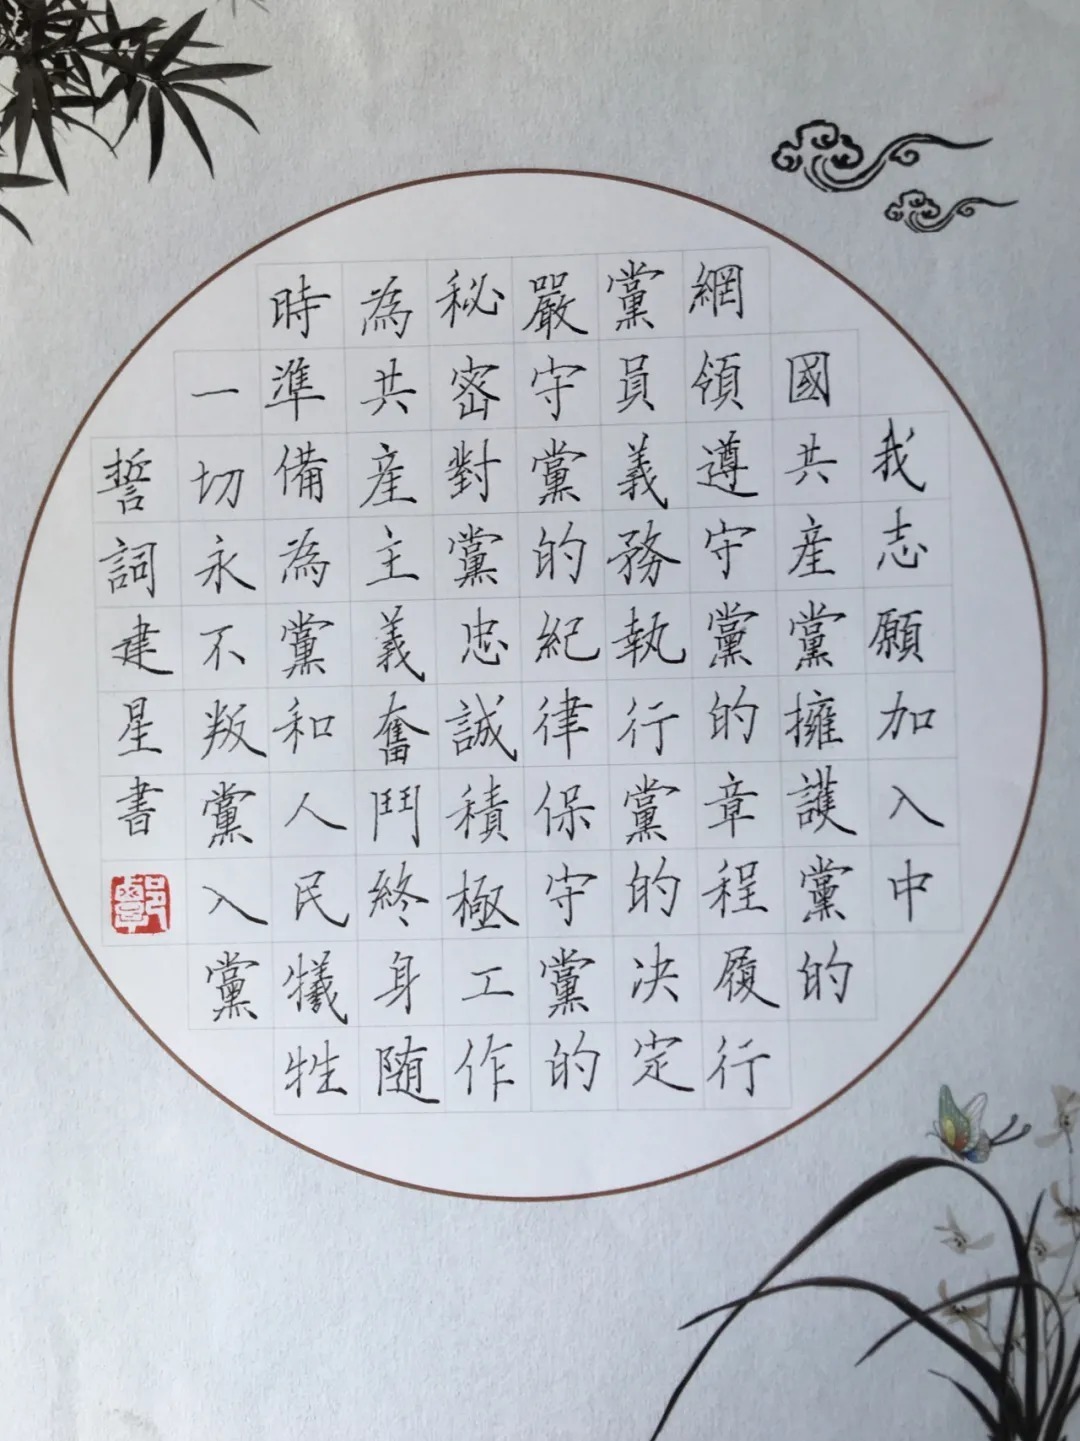 我志願加入中
國共産黨擁護黨的
網領遵守黨的章程履行
黨員義務執行黨的决定
嚴守黨的紀律保守黨的
秘密對黨忠誠積極工作
為共産主義奮鬥終身随
時準備為黨和人民犧牲
一切永不叛黨入黨
誓詞建星書